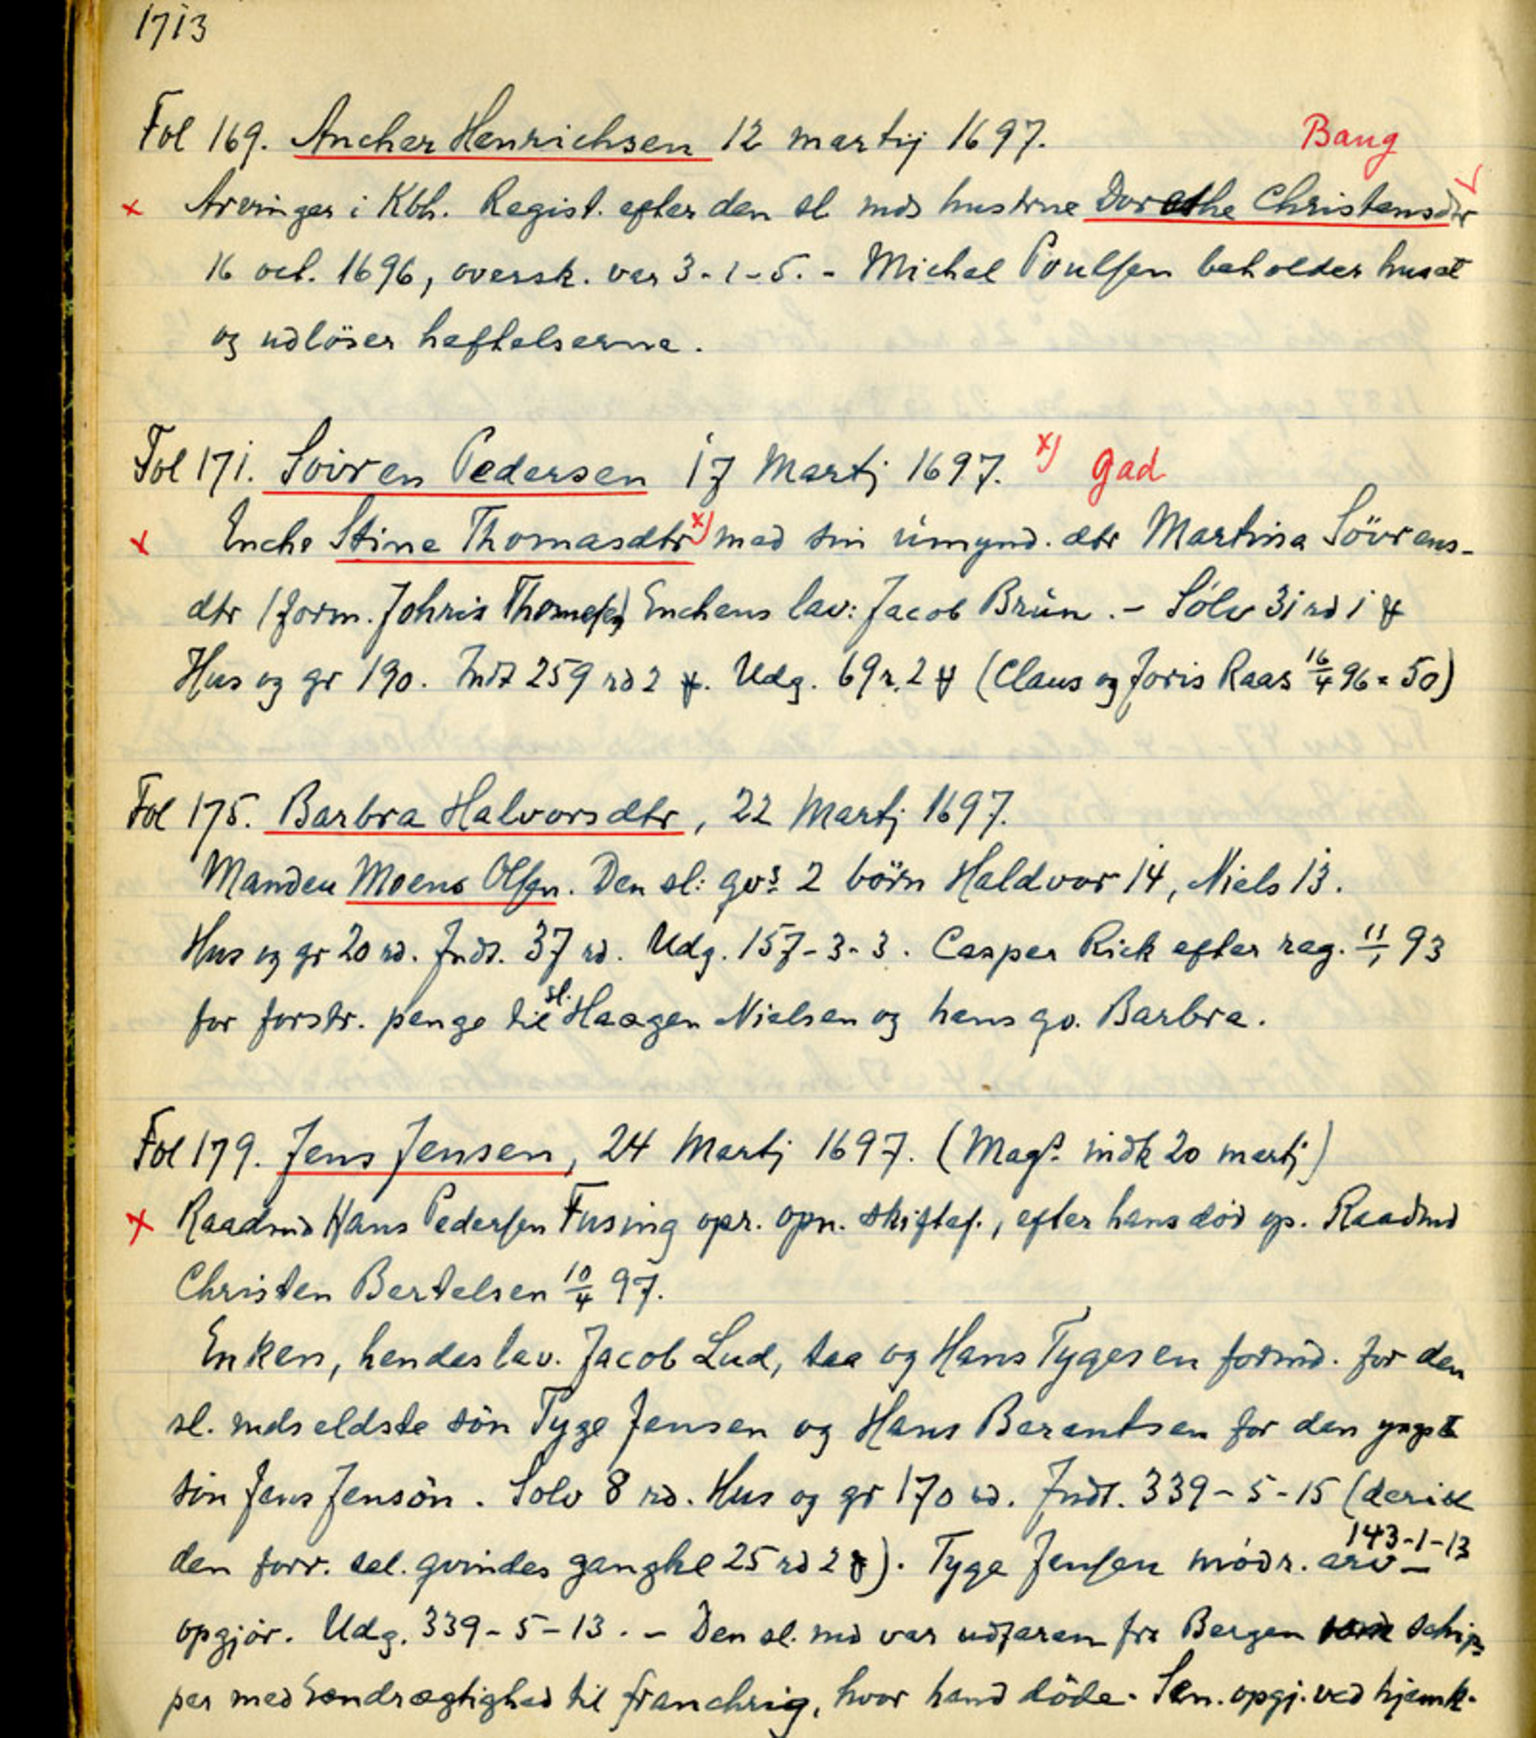 1713
Fol 169. Ancher Henrichsen 12 martij 1697. Bang
x Arvinger i Kbh. Regist. efter den sl mds hustrue Dorothe Christensdtr
16 oct. 1696, oversk. var 3-1-5. - Michel Poulsen beholder huset
og udlöser heftelserne.
Fol 171. Soivren Pedersen 17 Martj 1697. x) Gad
x Enche Stine Thomasdtr x) med sin umynd. dtr Martina Sövrens-
dtr (form. Johris Thomesen) Enchens lav: Jacob Brun. - Sölv 31 rd 1 ꝸ
Hus og gr 190. Indt 259 rd 2 ꝸ. Udg. 69 r. 2 ꝸ (Claus og Joris Raas 16/4 96 = 50)
Fol 175. Barbra Halvorsdtr, 22 Martj 1697.
Manden Moens Olsen. Den sl: qvs 2 börn Haldvor 14, Niels 13.
Hus og gr 20 rd. Indt. 37 rd. Udg. 157-3-3. Casper Rick efter reg. 11/1 93
for forstr. penge til sl. Haagen Nielsen og hans qv. Barbra.
Fol 179. Jens Jensen, 24 Martj 1697. (Mags. indk 20 martj)
x Raadmd Hans Pedersen Fusing opr. opn. skiftef., efter hans död op. Raadmd
Christen Bertelsen 10/4 97.
Enken, hendes lav. Jacob Lud, saa og Hans Tygesen formd. for den
sl. mds eldste sön Tyge Jensen og Hans Berentsen for den yngste
sön Jens Jensön. Sölv 8 rd. Hus og gr 170 rd. Indt. 339-5-15 (deri
den forr. sel. qvindes gangkl 25 rd 2 ꝸ). Tyge Jensen mödr. arv - 143-1-13
opgjör. Udg. 339-5-13. - Den sl. md var udfaren fra Bergen schip-
per med Eendrægtighed til franchrig, hvor hand döde. Sen. opgj. ved hjemk.